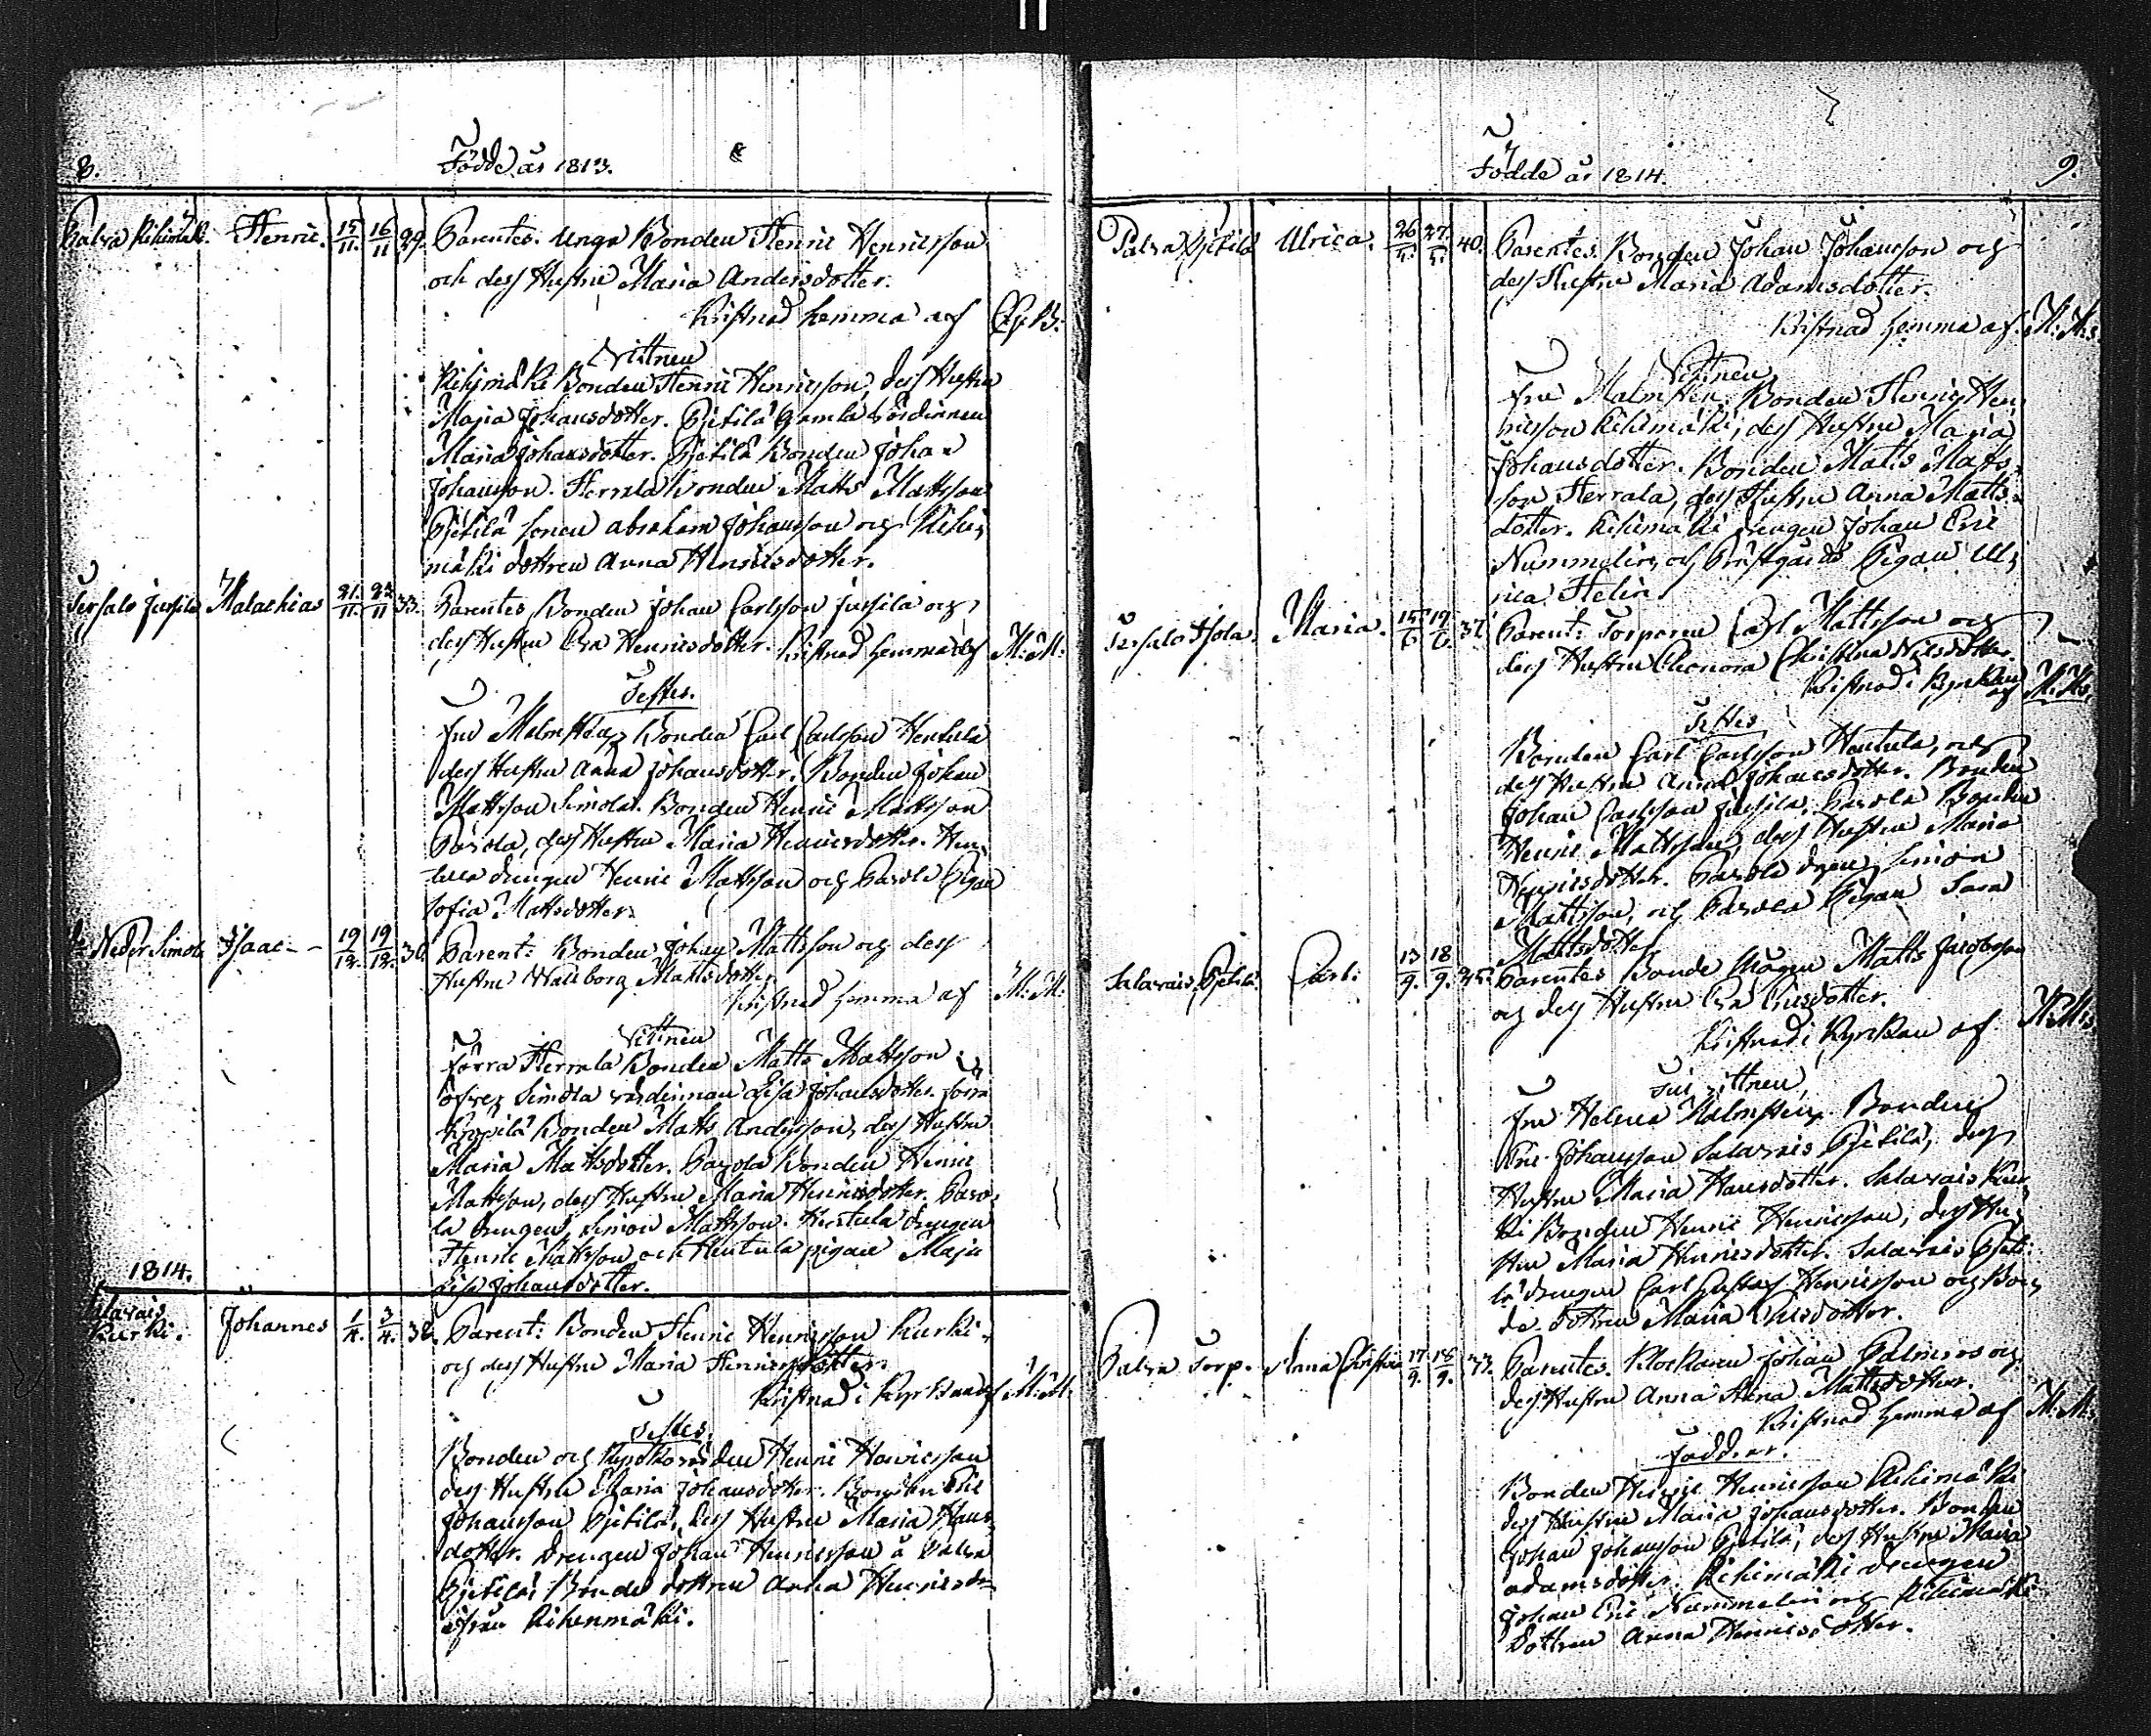 8.
Födde år 1813.
Palva Kihimäk. Henric. 15/11. 16/11 29. Parentes. Unga Bonden Henric Henricsson
och dess Hustru Maria Andersdotter.
Kristnad hemma af
Vittnen
Kihimäki Bonden Henric Henricsson, dess Hustru
Maria Johansdotter. Pjetilä Gamla Värdinnan
Maria Johansdotter. Pjetilä Bonden Johan
Johansson. Herrala Bonden Matts Mattsson
Pjetilä Sonen Abraham Johansson och Kihi,
mäki dottren Anna Henricsdotter.
Tersalo Jussila Malachias 21./11. 22/11 33. Parentes, Bonden Johan Carlsson Jussila och
dess Hustru Eva Henricsdotter. Kristnad hemma af M: M:
Testes.
Fru Malmsten, Bonden Carl Carlsson Hentula
dess Hustru Anna Johansdotter. Bonden Johan
Mattsson Simola. Bonden Henric Mattsson
Pavola, dess Hustru Maria Henricsdotter. Hen,
tula drengen Henric Mattsson och Pavola Pigan
Sofia Mattsdotter.
Neder Simola Isaac 19/12. 19/12. Parent: Bonden Johan Mattsson och dess
Hustru Wallborg Mattsdotter
Kristnad hemma af M: M:
Vittnen
Förra Herrala Bonden Matts Mattsson
öfver Simola värdinnan Lisa Johansdotter. förra
Bonden Matts Andersson, dess Hustru
Maria Mattsdotter. Pavola Bonden Henric
Mattsson, dess Hustru Maria Henricsdotter. Pavo,
la drengen, Simon Mattsson. Hentula drengen
Henric Mattsson och Hentula pigan Maja
Lisa Johansdotter.
1814.
Salavais
Kurki. Johannes 1/4. 3/4. 38. Parent: Bonden Henric Henricsson Kurki
och dess Hustru Maria Henricsdotter
Kristnad i Kyrkan af M: M:
Testes.
Bonden och Henric Henricsson
dess Hustru Maria Johansdotter. Bonden Eric
Johansson Pjetilä, dess Hustru Maria Hans,
dotter. Drengen Johan Henricsson å Palva
Pjetilä. Bonde dottren Anna Henricsdr
ifrån Kihenmäki.
Födde år 1814.
9.
Palva Pjetilä Ulrica. 26/5. 27/5. 40. Parentes. Bonden Johan Johansson och
dess Hustru Maria Adamsdotter.
Kristnad hemma af M: M:
Vittnen
Fru Malmsten, Bonden Henric Hen,
ricsson Kihimäki, dess Hustru Maria
Johansdotter. Bonden Matts Matts,
son Herrala, dess Hustru Anna Matts,
dotter. Kihimäki drengen Johan Eric
Nummelin, och Prästgårds Pigan Ul,
rica Helin.
Tersalo Isola. Maria. 15/6 19/6. 37. Parent: Torparen Carl Mattsson och
dess Hustru Eleonora Christina Nilsdotter.
Kristnad i Kyrkan
af M: M:
Testes
Bonden Carl Carlsson Hentula, och
dess Hustru Anna Johansdotter. Bonden
Johan Carlsson Jussila, Pavola Bonden
Henric Mattsson, dess Hustru Maria
Henricsdotter. Pavola drgen, Simon
Mattsson, och Pavola Pigan Sara
Mattsdotter.
Salavais, Pjetilä Carl. 13/9. 18/9. Parentes Bonde Mågen Matts Jacobsson
och dess Hustru Eva Ericsdotter.
Kristnad i Kyrkan af M: M:
vittnen,
Fru Helena Malmsten, Bonden
Eric Johansson Salavais Pjetilä, dess
Hustru Maria Hansdotter. Salavais Kur,
ki Bonden Henric Henricsson, dess Hu,
stru Maria Henricsdotter. Salavais Pjeti,
lä drengen Carl Gustaf Henricsson och Bon,
de dottren Maria Ericsdotter.
Palva Torp. Anna Christina 17/9. 18/9. Parentes. Klockaren Johan Palmros och
dess Hustru Anna Stina Mattsdotter.
Kristnad hemma af M: M:
Faddrar.
Bonden Henric Henricsson Kihimäki
dess Hustru Maria Johansdotter. Bonden
Johan Johansson Pjetilä, dess Hustru Maria
Adamsdotter. Kihimäki drengen
Johan Eric Nummelin och Kihimäki
Dottren Anna Henricsdotter.